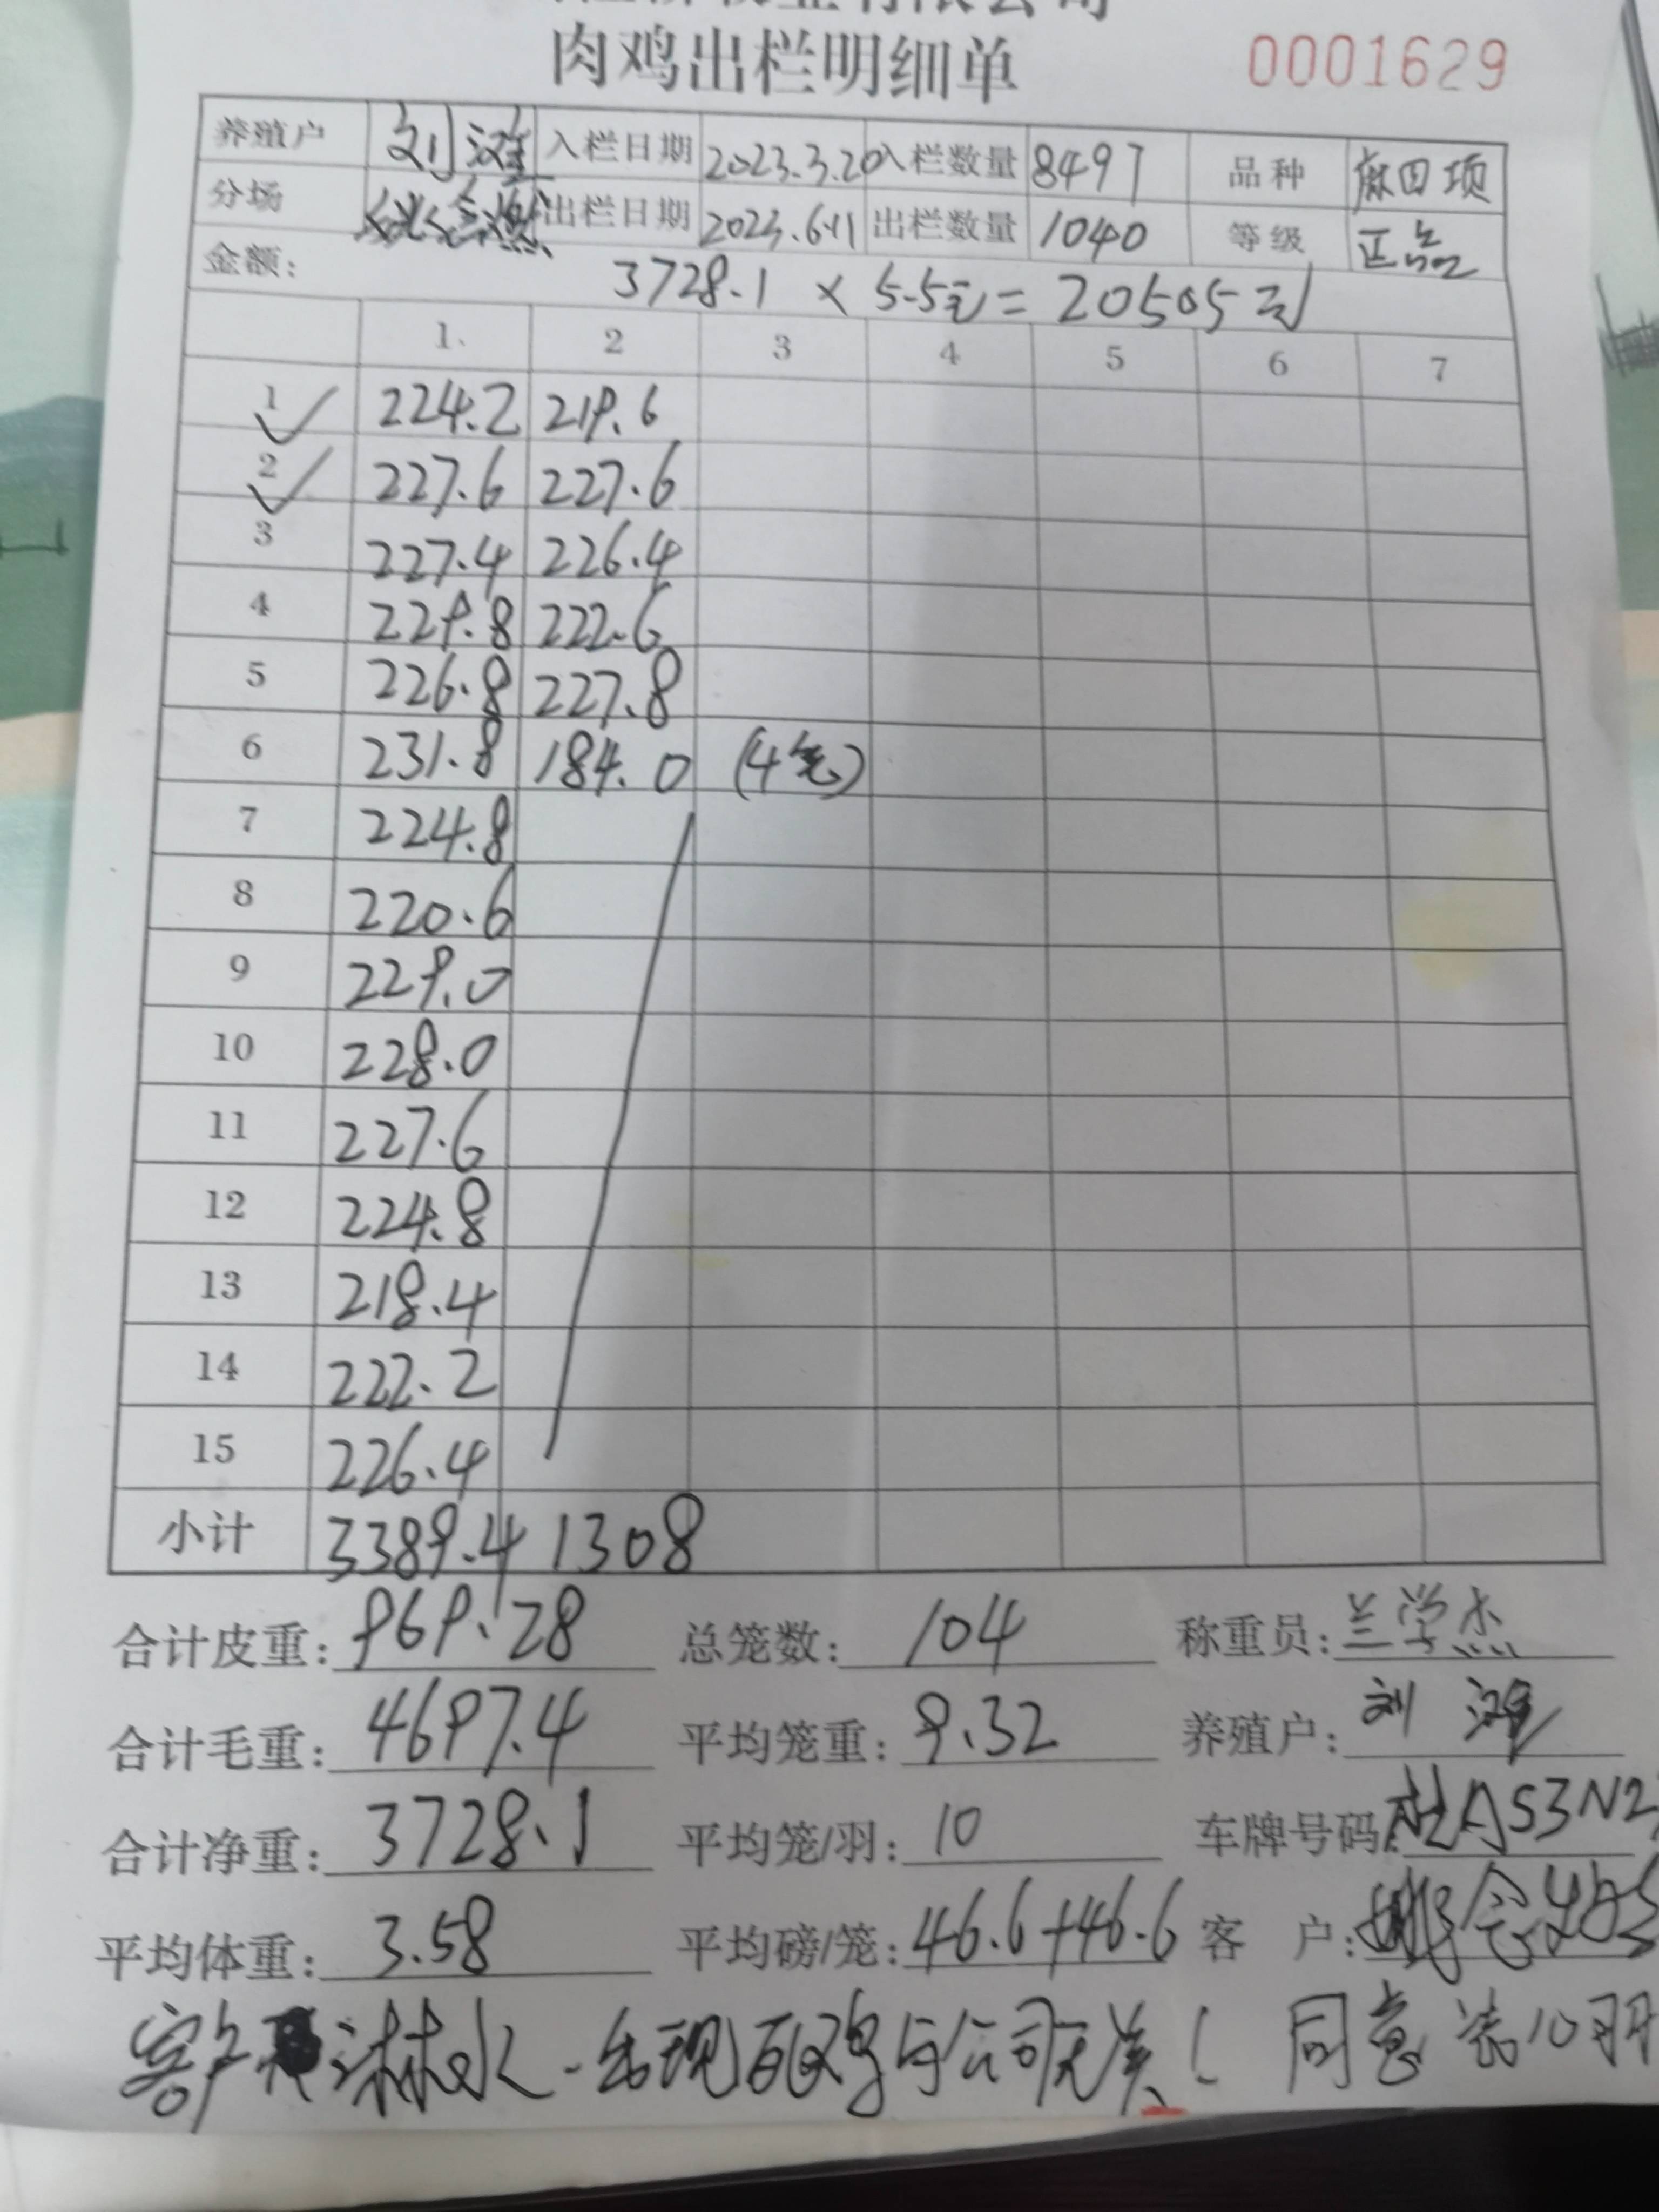 肉鸡出栏明细单 0001629
养殖户 刘 入栏日期 2023.3.20 入栏数量 8497 品种 麻四项
分场 出栏日期 2023.6.11 出栏数量 1040 等级 正品
金额: 3728.1 × 5.5元 = 20505元
1 2 3 4 5 6 7
1 224.2 219.6
2 227.6 227.6
3 227.4 226.4
4 229.8 222.6
5 226.8 227.8
6 231.8 184.0 (4笼)
7 224.8
8 220.6
9 229.0
10 228.0
11 227.6
12 224.8
13 218.4
14 222.2
15 226.4
小计 3389.4 1308
合计皮重: 969.28 总笼数: 104 称重员: 兰学杰
合计毛重: 4697.4 平均笼重: 9.32 养殖户: 刘
合计净重: 3728.1 平均笼/羽: 10 车牌号码: A53N2
平均体重: 3.58 平均磅/笼: 46.6+46.6 客 户:
客户 淋水-出现死鸡与公司无关! 同意装10羽